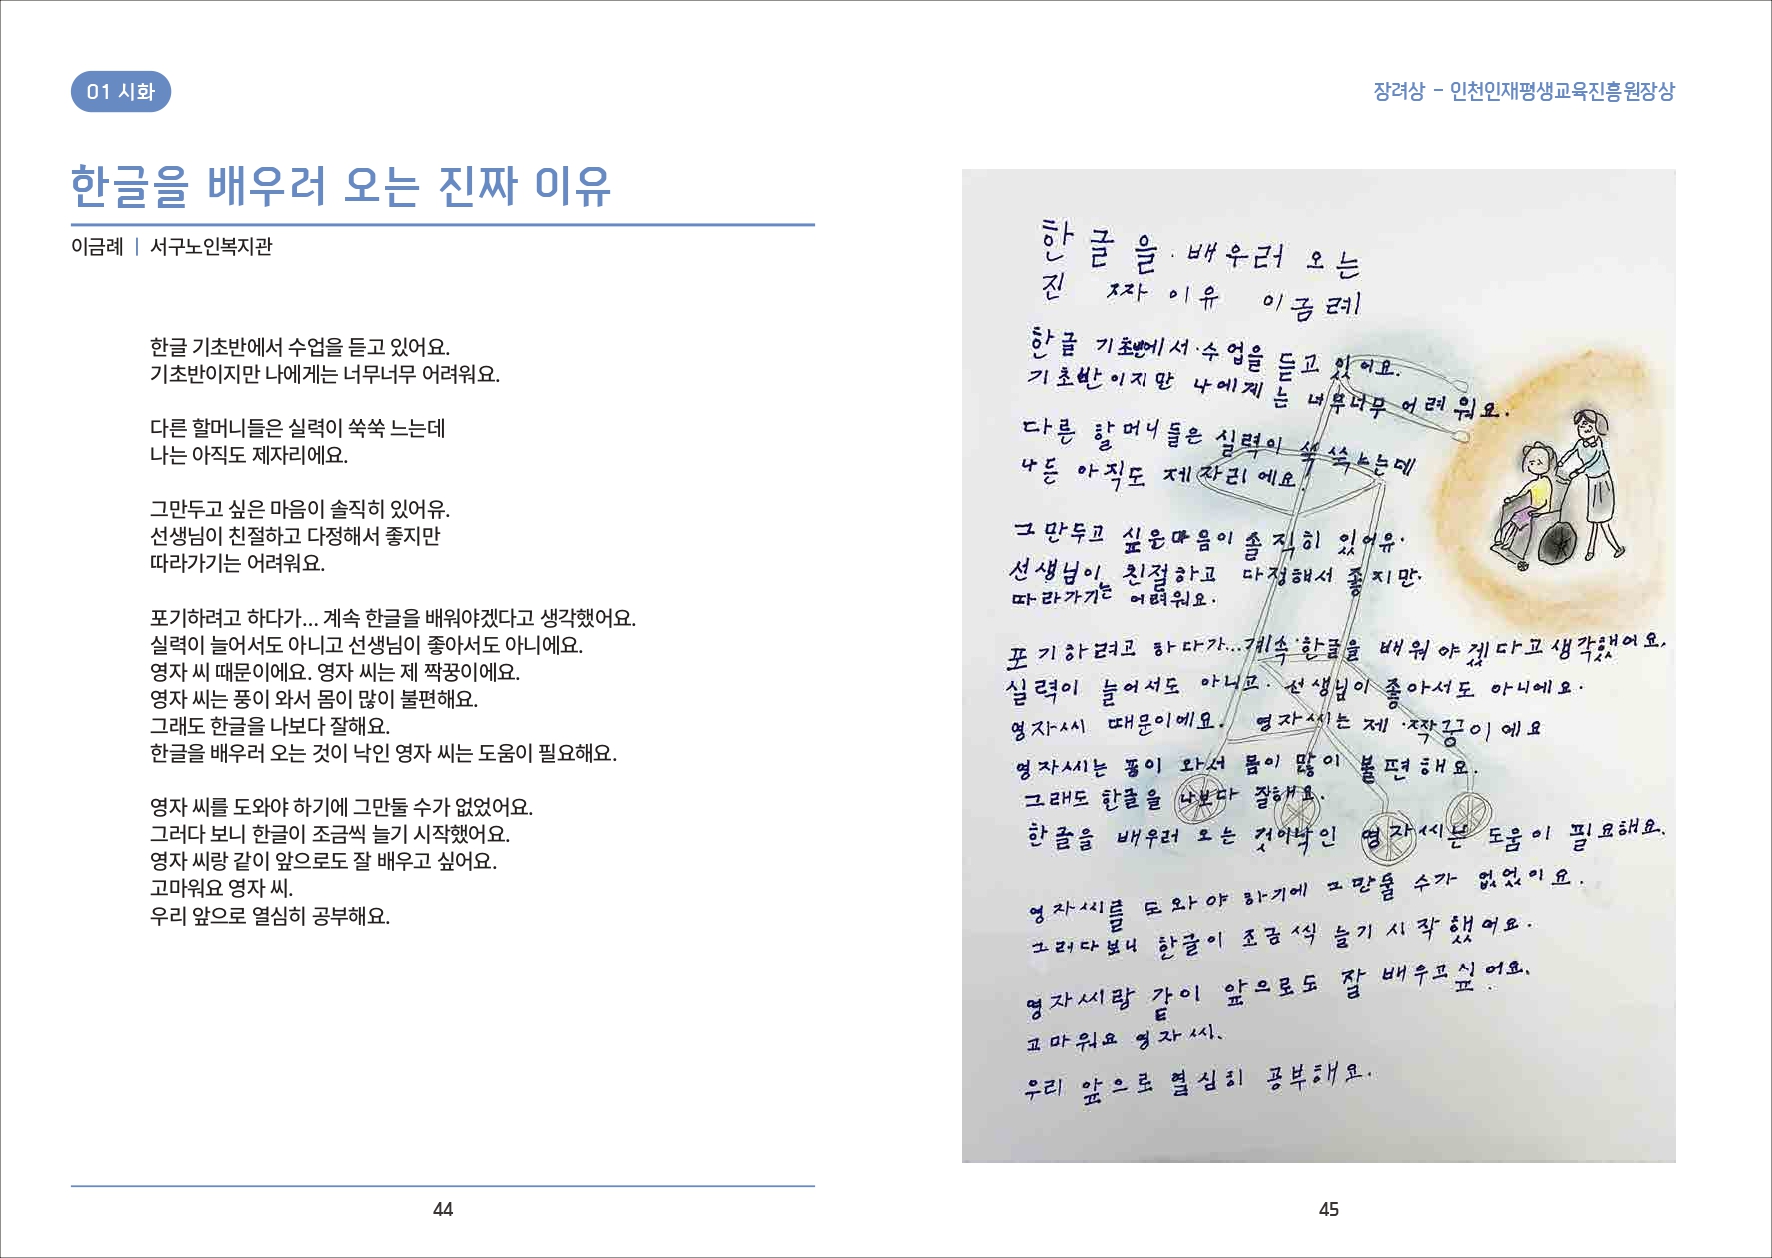 01 시화
장려상 - 인천인재평생교육진흥원장상
한글을 배우러 오는 진짜 이유
이금례 | 서구노인복지관
한글 기초반에서 수업을 듣고 있어요.
기초반이지만 나에게는 너무너무 어려워요.
다른 할머니들은 실력이 쑥쑥 느는데
나는 아직도 제자리에요.
그만두고 싶은 마음이 솔직히 있어유.
선생님이 친절하고 다정해서 좋지만
따라가기는 어려워요.
포기하려고 하다가... 계속 한글을 배워야겠다고 생각했어요.
실력이 늘어서도 아니고 선생님이 좋아서도 아니에요.
영자 씨 때문이에요. 영자 씨는 제 짝꿍이에요.
영자 씨는 풍이 와서 몸이 많이 불편해요.
그래도 한글을 나보다 잘해요.
한글을 배우러 오는 것이 낙인 영자 씨는 도움이 필요해요.
영자 씨를 도와야 하기에 그만둘 수가 없었어요.
그러다 보니 한글이 조금씩 늘기 시작했어요.
영자 씨랑 같이 앞으로도 잘 배우고 싶어요.
고마워요 영자 씨.
우리 앞으로 열심히 공부해요.
44
한글을. 배우러 오는
진 짜 이유 이금례
한글 기초반에서.수업을 듣고 있어요.
기초반이지만 나에게는 너무너무 어려워요.
다른 할머니들은 실력이 쑥쑥느는데
나든 아직도 제자리에요.
그만두고 싶은마음이 솔직히 있어유.
선생님이 친절하고 다정해서 좋지만.
따라가기는 어려워요.
포기하려고 하다가...계속 한글을 배워야겠다고생각했어요.
실력이 늘어서도 아니고. 선생님이 좋아서도 아니에요.
영자씨 때문이에요. 영자씨는 제 짝꿍이에요
영자씨는 풍이 와서 몸이 많이 불편해요.
그래도 한글을 나보다 잘해요.
한글을 배우러 오는 것이낙인 영자씨는 도움이 필요해요.
영자씨를 도와야 하기에 그만둘 수가 없었이요.
그러다보니 한글이 조금씩 늘기 시작했어요.
영자씨랑 같이 앞으로도 잘 배우고싶어요.
고마워요 영자씨.
우리 앞으로 열심히 공부해요.
45